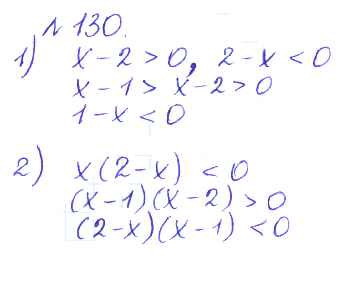 № 130.
1) x - 2 > 0, 2 - x < 0
x - 1 > x - 2 > 0
1 - x < 0
2) x (2 - x) < 0
(x - 1)(x - 2) > 0
(2 - x)(x - 1) < 0